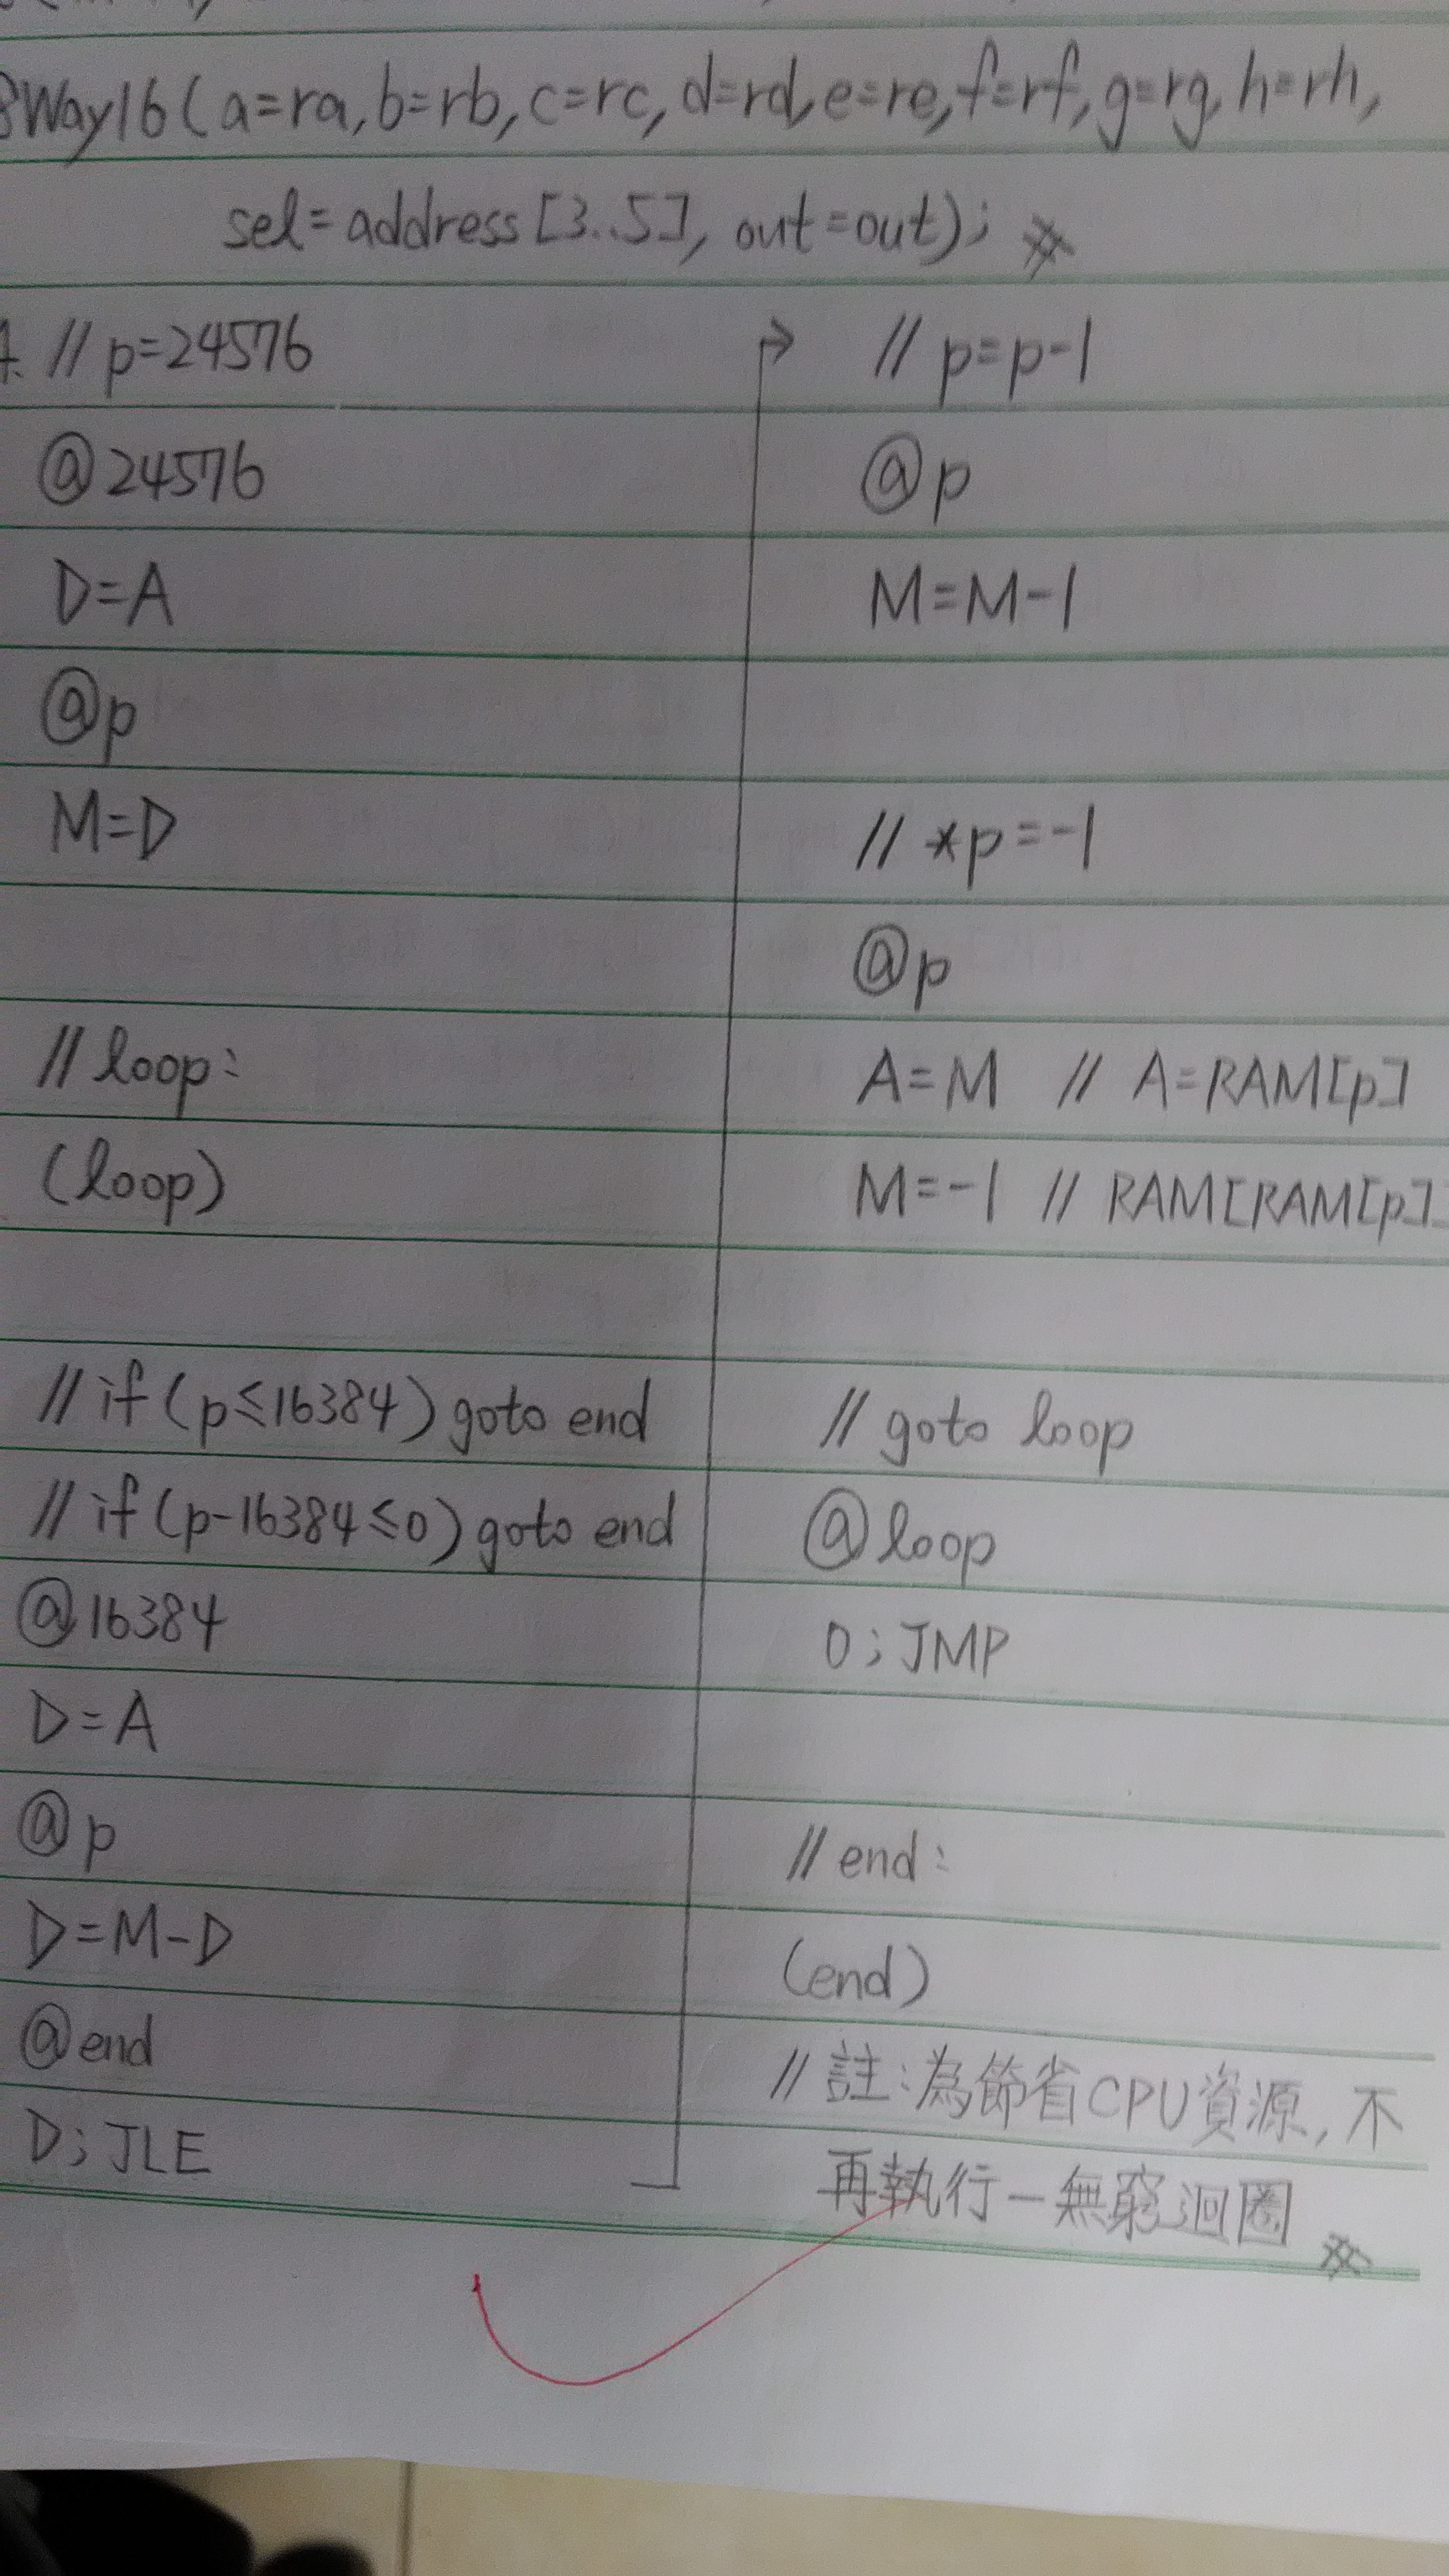 8Way16(a=ra,b=rb,c=rc,d=rd,e=re,f=rf,g=rg,h=rh,
sel=address[3..5], out=out);
4. // p=24576
@24576
D=A
@p
M=D
// loop:
(loop)
// if (p≤16384) goto end
// if (p-16384≤0) goto end
@16384
D=A
@p
D=M-D
@end
D;JLE
→ // p=p-1
@p
M=M-1
// *p=-1
@p
A=M // A=RAM[p]
M=-1 // RAM[RAM[p]
// goto loop
@loop
0;JMP
// end:
(end)
// 註:為節省CPU資源,不
再執行一無窮迴圈